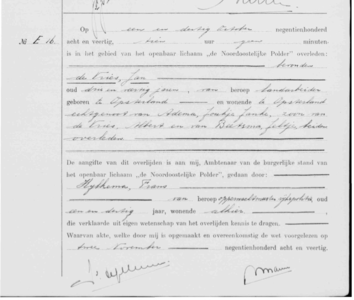 No. E. 16.
Op een en dertig October negentienhonderd
acht en veertig, tien uur geen minuten
is in het gebied van het openbaar lichaam „de Noordoostelijke Polder"
de Vries, Jan
oud drie en dertig jaren, van beroep landarbeider
geboren te Opsterland en wonende te Opsterland
echtgenoot van Adema, zoon van
de Vries, Albert en van beiden
overleden
De aangifte van dit overlijden is aan mij, Ambtenaar van de burgerlijke stand van
het openbaar lichaam „de Noordoostelijke Polder", gedaan door:
Hylkema, Frans
van beroep oud
een en dertig jaar, wonende alhier,
die verklaarde uit eigen wetenschap van het overlijden kennis te dragen.
Waarvan akte, welke door mij is opgemaakt en overeenkomstig de wet voorgelezen op
twee November negentienhonderd acht en veertig.